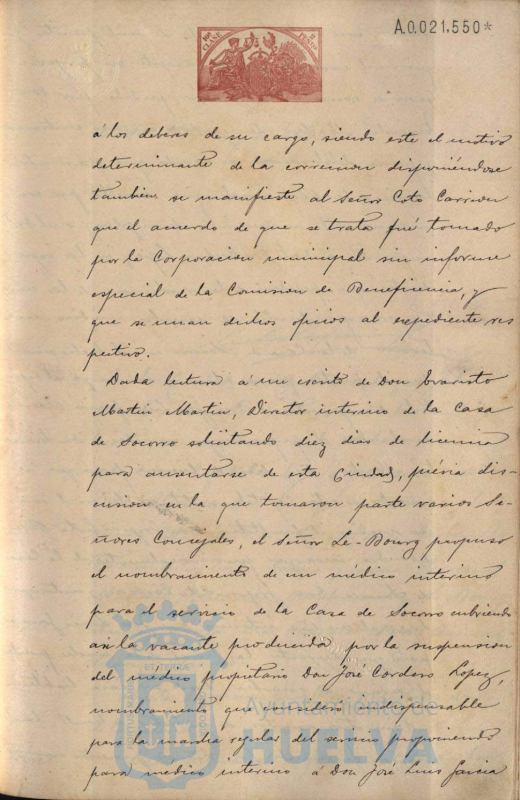 A.0.021.550*
á los deberes de su cargo, siendo este el motivo
determinante de la correccion disponiéndose
tambien se manifieste al Señor Coto Carrion
que el acuerdo de que se trata fué tomado
por la Corporacion municipal sin informe
especial de la Comision de Beneficencia, y
que se unan dichos oficios al expediente res
pectivo.
Dada lectura á un escrito de Don Evaristo
Martin Martin, Director interino de la Casa
de Socorro solicitando diez dias de licencia
para ausentarse de esta Ciudad, prévia dis-
cusion en la que tomaron parte varios Se-
ñores Concejales, el Señor Le-Bourg propuso
el nombramiento de un médico interino
para el servicio de la Casa de Socorro cubriendo
asi la vacante producida por la suspension
del médico propietario Don José Cordero Lopez,
nombramiento que consideró indispensable
para la marcha regular del servicio proponiendo
para médico interino á Don José Luis Garcia
Ayuntamiento de
HUELVA